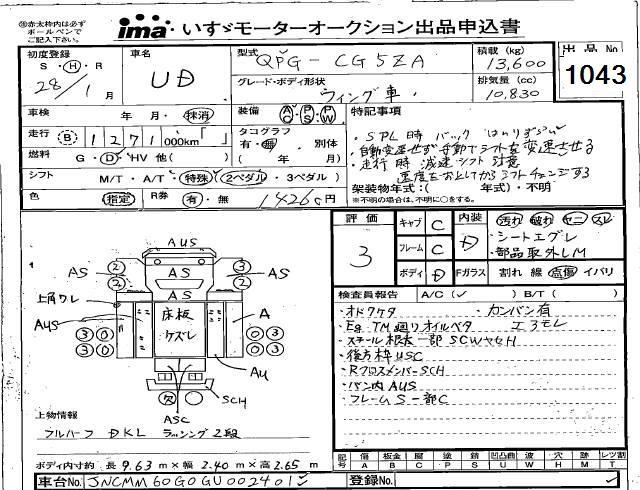 ㊟赤太枠内は必ずボールペンでご記入下さい。
ima いすゞモーターオークション出品申込書
初度登録 S・H・R 28年/1月
車名 UD
型式 QPG-CG5ZA
グレード・ボディ形状 ウィング車
積載 (kg) 13,600
排気量 (cc) 10,830
出品No 1043
車検 年・月・抹消
装備 AC・PS・PW
特記事項
走行 B 1271,000km「 」
タコグラフ 有・無、別体 ( 年 月)
・SPL時 バック
・自動変速せず手動でシフトを変速させる
・走行時 減速シフト 注意
速度をおとしてからシフトチェンジする
燃料 G・D・HV 他( )
シフト M/T・A/T・特殊(2ペダル・3ペダル)
架装物年式:( 年式)・不明
※不明の場合は、不明に○をする。
色 指定
R券 有・無 14260円
評価 3
キャブ C
フレーム C
ボディ D
内装 D
汚れ 破れ ヤニ スレ
・シートエグレ
・部品取外しM
Fガラス 割れ 線 点傷 イバリ
AUS
AS
2 3
AS AS AS
2 2
上角ワレ AS
AUS 床板ケズレ A
3 0 0 3
3 0 0 3
AU
欠 SCH
ASC
検査員報告 A/C(✓) B/T( )
・オドケタ ・カンバン有
・Eg TM廻りオイルベタ エアモレ
・スチール根太一部SCWヤセH
・後方枠USC
・RクロスメンバーSCH
・バン内AUS
・フレームS一部C
上物情報
フルハーフ DKL ラッシング2段
ボディ内寸約 長 9.63m×幅 2.40m×高 2.65m
記号 傷A 板金B 腐C 塗P 錆S 凹凸曲U 波W 穴H 無M 千切T
車台No. JNCMM60G0GU002401
登録No.